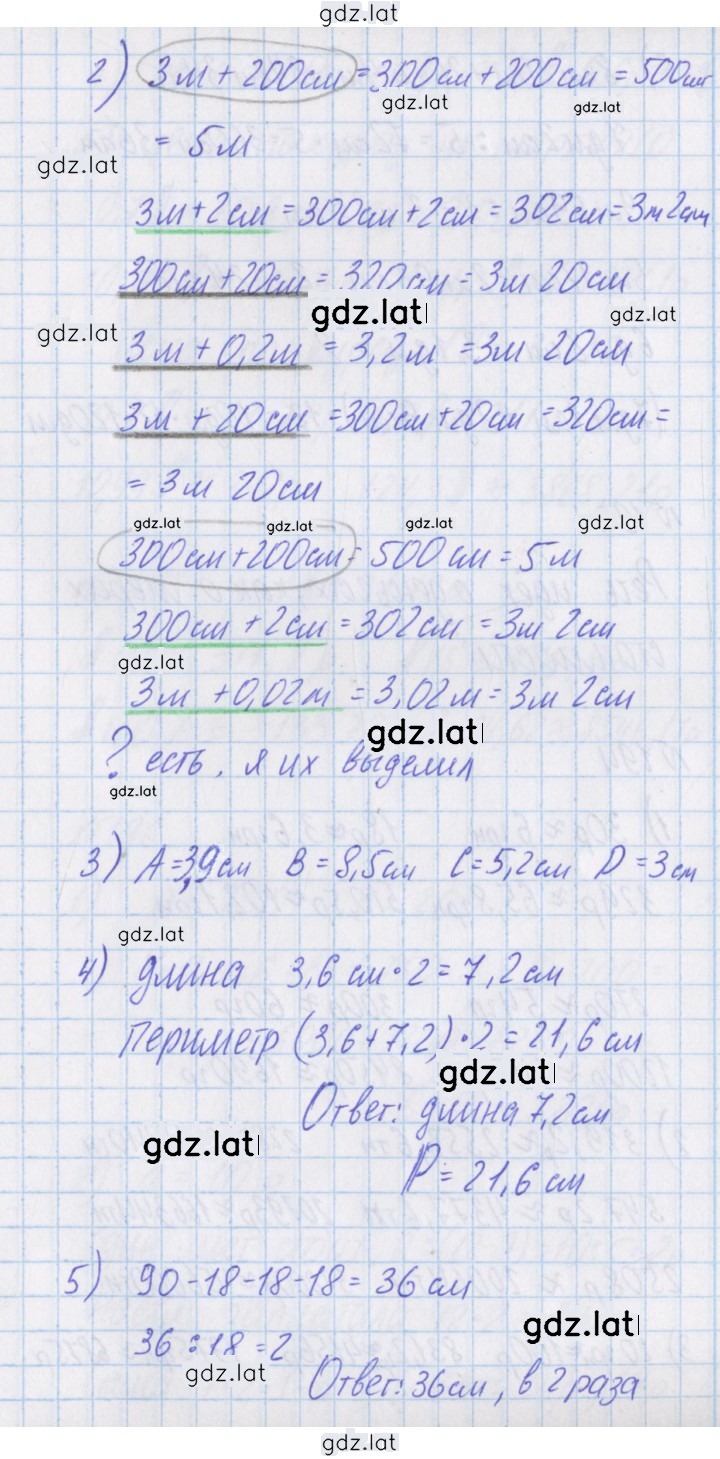 gdz.lat
2) 3м + 200см = 300см + 200см = 500см
gdz.lat gdz.lat
= 5м
gdz.lat
3м + 2см = 300см + 2см = 302см = 3м 2см
300см + 20см = 320см = 3м 20см
gdz.lat gdz.lat
gdz.lat
3м + 0,2м = 3,2м = 3м 20см
3м + 20см = 300см + 20см = 320см =
= 3м 20см
gdz.lat gdz.lat gdz.lat gdz.lat
300см + 200см = 500см = 5м
300см + 2см = 302см = 3м 2см
gdz.lat
3м + 0,02м = 3,02м = 3м 2см
gdz.lat
? есть, я их выделил
gdz.lat
3) A = 3,9см B = 8,5см C = 5,2см D = 3см
gdz.lat
4) длина 3,6 см · 2 = 7,2см
Периметр (3,6 + 7,2) · 2 = 21,6 см
gdz.lat
Ответ: длина 7,2см
gdz.lat
P = 21,6 см
5) 90 - 18 - 18 - 18 = 36 см
gdz.lat
36 : 18 = 2
gdz.lat
Ответ: 36см, в 2 раза
gdz.lat